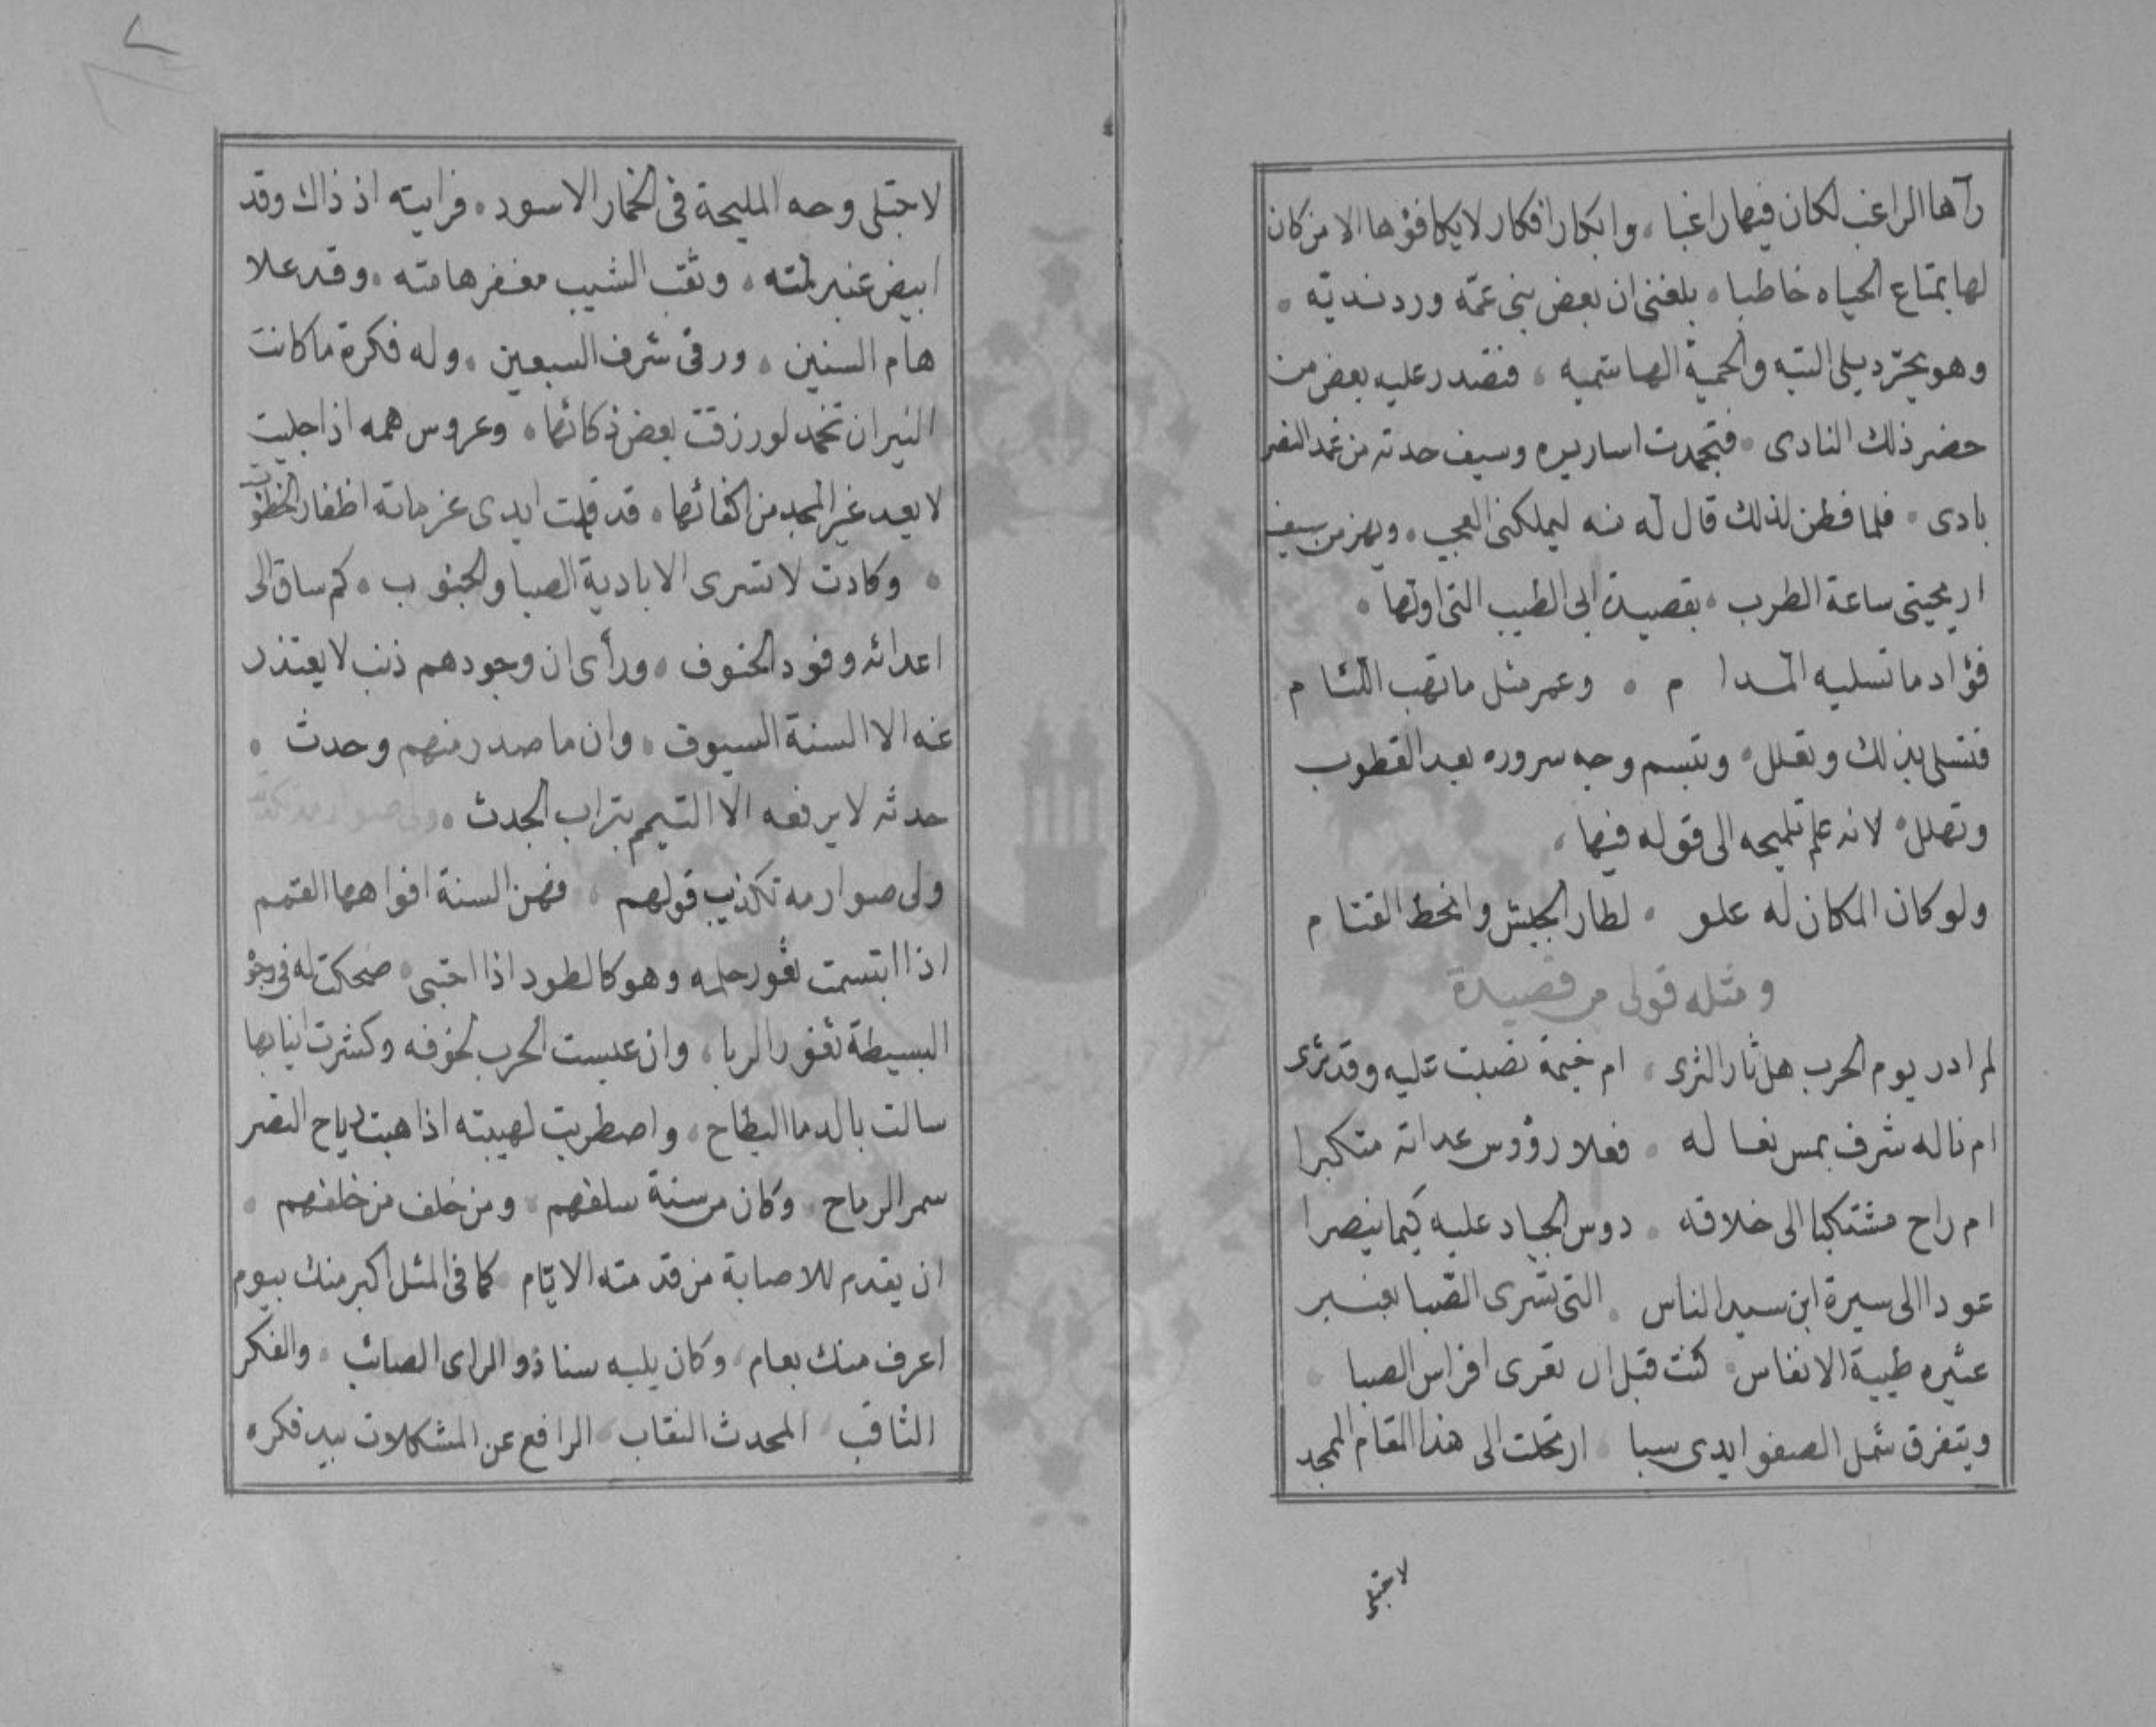 رآها الراغب لكان فيها راغبا ، وابكار افكار لا يكافؤها الا من كان
لها بمتاع الحياه خاطبا ، بلغني ان بعض بني عمّه ورد نديّه ،
وهو يجرّ ديلي التيه والحمية الهاشميه ، فتصدر عليه بعض من
حضر ذلك النادى ، فتجمدت اساريره وسيف حدته من غمد النصر
بادى ، فلما فطن لذلك قال له منه ليملكني العجب ، ويهز من سيف
اريحيتى ساعة الطرب ، بقصيدة ابى الطيب التى اولها ،
فؤاد ما تسليه المدام ، وعمر مثل ما تهب اللئام
فتسلى بذلك وتعلل ، وتبسم وجه سروره بعد القطوب
وتهلل ، لانه علم تلميحه الى قوله فيها ،
ولو كان المكان له علو ، لطار الجيش وانحط القتام
ومثله قولى من قصيدة
لم ادر يوم الحرب هل ثار الثرى ، ام خيمة نصبت عليه وقد ترى
ام ناله شرف بمس نعاله ، فعلا رؤوس عداته متكبرا
ام راح مشتكيا الى خلاقه ، دوس الجياد عليه كيما ينصرا
عودا الى سيرة ابن سيد الناس ، التى تسرى الصّبا بعنبر
عثيره طيبة الانفاس ، كنت قبل ان تعرى افراس الصبا ،
ويتفرق شمل الصفو ايدى سبا ، ارتحلت الى هذا المقام الممجد
لاجتلى
لاجتلى وجه المليحة فى الخمار الاسود ، فرايته اذ ذاك وقد
ابيض عنبر لمته ، وثقب الشيب مغفر هامته ، وقد علا
هام السنين ، ورقى شرف السبعين ، وله فكرة ما كانت
النيران تخمد لو رزقت بعض ذكائها ، وعروس همه اذا جليت
لا يعد غير المجد من اكفائها ، قد قلمت ايدى عزماته اظفار الخطوب
، وكادت لا تسرى الا بادية الصبا والجنوب ، كم ساق الى
اعدائه وفود الحتوف ، ورأى ان وجودهم ذنب لا يعتذر
عنه الا السنة السيوف ، وان ما صدر منهم وحدث ،
حدثه لا يرفعه الا التيمم بتراب الجدث ، ولى صوارمه تكذيب
ولى صوارمه تكذيب قولهم ، فهن السنة افواهها القمم
اذا ابتسمت ثغور حلمه وهو كالطود اذا احتبى ، ضحكت له فى وجوه
البسيطة ثغور الربا ، وان عبست الحرب لخوفه وكشرت انيابها
سالت بالدما البطاح ، واضطربت لهيبته اذا هبت رياح النصر
سمر الرماح ، وكان من سنة سلفهم ، ومن خلف من خلفهم ،
ان يقدم للاصابة من قدمته الايّام ، كما فى المثل اكبر منك بيوم
اعرف منك بعام ، وكان يليه سنا ذو الراى الصائب ، والفكر
الثاقب ، المحدث النقاب ، الرافع عن المشكلات بيد فكره